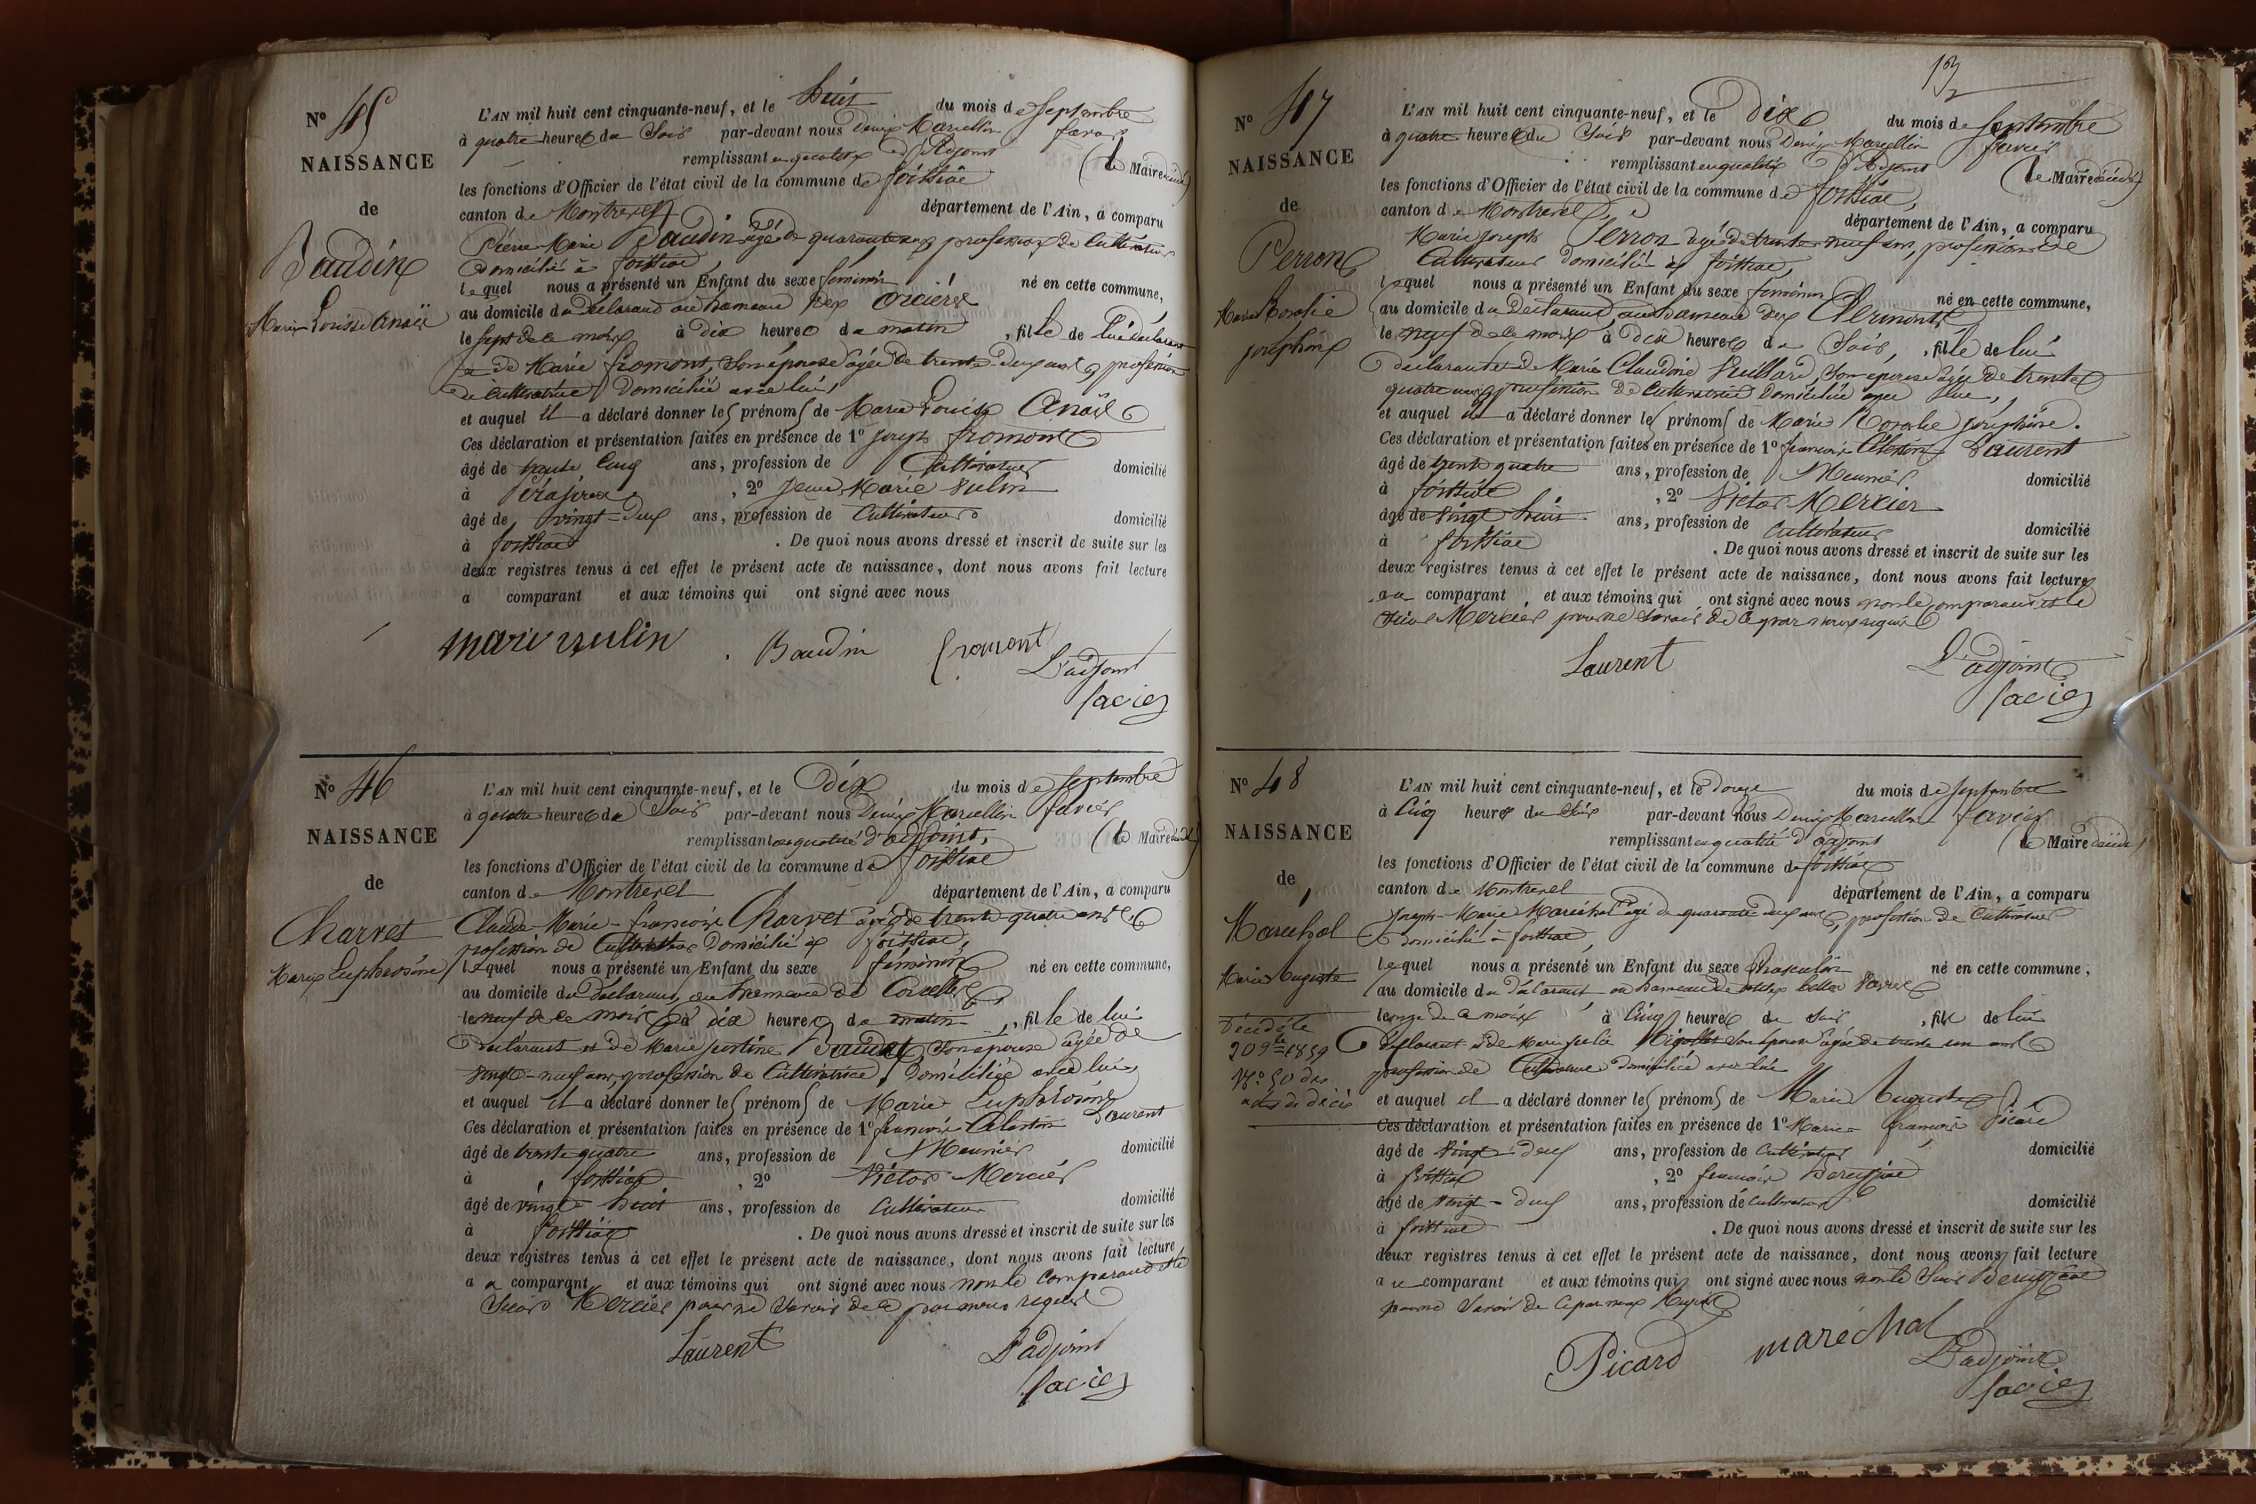 N° 45
NAISSANCE
de
Baudin
Marie Louise Anaïs
L'AN mil huit cent cinquante-neuf, et le huit du mois de Septembre
à quatre heures du Soir par-devant nous Denis Marcellin favier
remplissant en qualité d'Adjoint (le Maire décédé)
les fonctions d'Officier de l'état civil de la commune de foissiat
canton de Montrevel département de l'Ain, a comparu
Pierre Marie Baudin âgé de quarante ans profession de Cultivateur
Domicilié à foissiat
lequel nous a présenté un Enfant du sexe féminin né en cette commune,
au domicile du déclarant au hameau des Orcières
le sept de ce mois à dix heures du matin, fille de lui déclarant
et de Marie fromont, Son épouse âgée de trente deux ans profession
de Cultivatrice Domiciliée avec lui,
et auquel il a déclaré donner les prénoms de Marie Louise Anaïs
Ces déclaration et présentation faites en présence de 1° Joseph fromont
âgé de trente Cinq ans, profession de Cultivateur domicilié
à , 2° Jean Marie Vulin
âgé de vingt-deux ans, profession de Cultivateur domicilié
à foissiat . De quoi nous avons dressé et inscrit de suite sur les
deux registres tenus à cet effet le présent acte de naissance, dont nous avons fait lecture
a comparant et aux témoins qui ont signé avec nous
marie vulin Baudin fromont
L'adjoint
favier
N° 46
NAISSANCE
de
Charvet
Marie Euphrosine
L'AN mil huit cent cinquante-neuf, et le Dix du mois de Septembre
à quatre heures du Soir par-devant nous Denis Marcellin favier
remplissant en qualité d'adjoint, (le Maire décédé)
les fonctions d'Officier de l'état civil de la commune de foissiat
canton de Montrevel département de l'Ain, a comparu
Claude Marie françois Charvet âgé de trente quatre ans,
profession de Cultivateur Domicilié à foissiat,
lequel nous a présenté un Enfant du sexe féminin né en cette commune,
au domicile du déclarant, au hameau de Corcelles,
le neuf de ce mois à dix heures du matin, fille de lui
déclarant et de Marie Justine Son épouse âgée de
vingt-neuf ans, profession de Cultivatrice, Domiciliée avec lui,
et auquel il a déclaré donner les prénoms de Marie Euphrosine
Ces déclaration et présentation faites en présence de 1° françois Célestin Laurent
âgé de trente quatre ans, profession de Meunier domicilié
à foissiat , 2° Victor Mercier
âgé de vingt-huit ans, profession de Cultivateur domicilié
à foissiat . De quoi nous avons dressé et inscrit de suite sur les
deux registres tenus à cet effet le présent acte de naissance, dont nous avons fait lecture
au comparant et aux témoins qui ont signé avec nous non le comparant et le
Sieur Mercier pour ne Savoir de ce par nous requis
Laurent L'adjoint
favier
13
N° 47
NAISSANCE
de
Perron
Marie Rosalie
joséphine
L'AN mil huit cent cinquante-neuf, et le Dix du mois de Septembre
à quatre heures du Soir par-devant nous Denis Marcellin favier
remplissant en qualité d'Adjoint (le Maire décédé)
les fonctions d'Officier de l'état civil de la commune de foissiat,
canton de Montrevel, département de l'Ain, a comparu
Marie Joseph Perron âgé de trente neuf ans, profession de
Cultivateur domicilié à foissiat,
lequel nous a présenté un Enfant du sexe féminin né en cette commune,
au domicile du déclarant, au hameau des Clermonts
le neuf de ce mois à dix heures du Soir, fille de lui
déclarant et de Marie Claudine Vuillard Son épouse âgée de trente
quatre ans, profession de Cultivatrice Domiciliée avec lui,
et auquel il a déclaré donner les prénoms de Marie Rosalie joséphine.
Ces déclaration et présentation faites en présence de 1° françois Célestin Laurent
âgé de trente quatre ans, profession de Meunier domicilié
à foissiat , 2° Victor Mercier
âgé de vingt huit ans, profession de Cultivateur domicilié
à foissiat . De quoi nous avons dressé et inscrit de suite sur les
deux registres tenus à cet effet le présent acte de naissance, dont nous avons fait lecture
au comparant, et aux témoins qui ont signé avec nous non le comparant et le
Sieur Mercier pour ne Savoir de ce par nous requis
Laurent L'adjoint
favier
N° 48
NAISSANCE
de
Marechal
Marie Auguste
Décédé le
20 9bre 1859
N° 50 des
actes de décès
L'AN mil huit cent cinquante-neuf, et le Douze du mois de Septembre
à Cinq heures du Soir par-devant nous Denis Marcellin favier
remplissant en qualité d'adjoint (le Maire décédé)
les fonctions d'Officier de l'état civil de la commune de foissiat
canton de Montrevel département de l'Ain, a comparu
Joseph-Marie Maréchal âgé de quarante deux ans, profession de Cultivateur
domicilié à foissiat
lequel nous a présenté un Enfant du sexe Masculin né en cette commune,
au domicile du déclarant au hameau de
le onze de ce mois à Cinq heures du Soir , fils de lui
déclarant et de Marie Julie Son épouse âgée de trente un ans
profession de Cultivatrice domiciliée avec lui
et auquel il a déclaré donner les prénoms de Marie Auguste
Ces déclaration et présentation faites en présence de 1° Marie françois Picard
âgé de vingt-deux ans, profession de Cultivateur domicilié
à foissiat , 2° françois
âgé de vingt-deux ans, profession de Cultivateur domicilié
à foissiat . De quoi nous avons dressé et inscrit de suite sur les
deux registres tenus à cet effet le présent acte de naissance, dont nous avons fait lecture
au comparant et aux témoins qui ont signé avec nous non le Sieur
pour ne Savoir de ce par nous Requis
Picard maréchal L'adjoint
favier